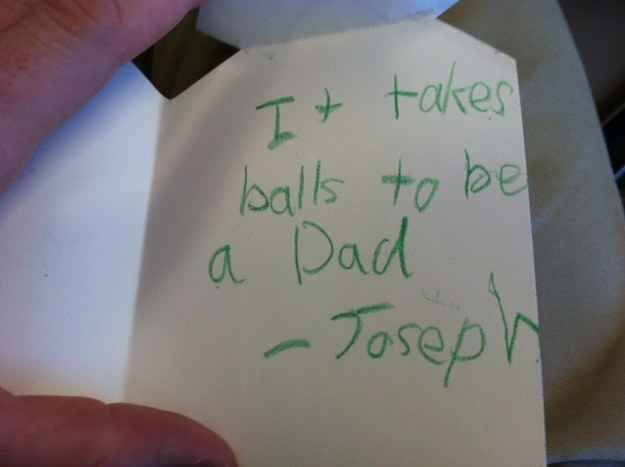 It takes
balls to be
a Dad
- Joseph